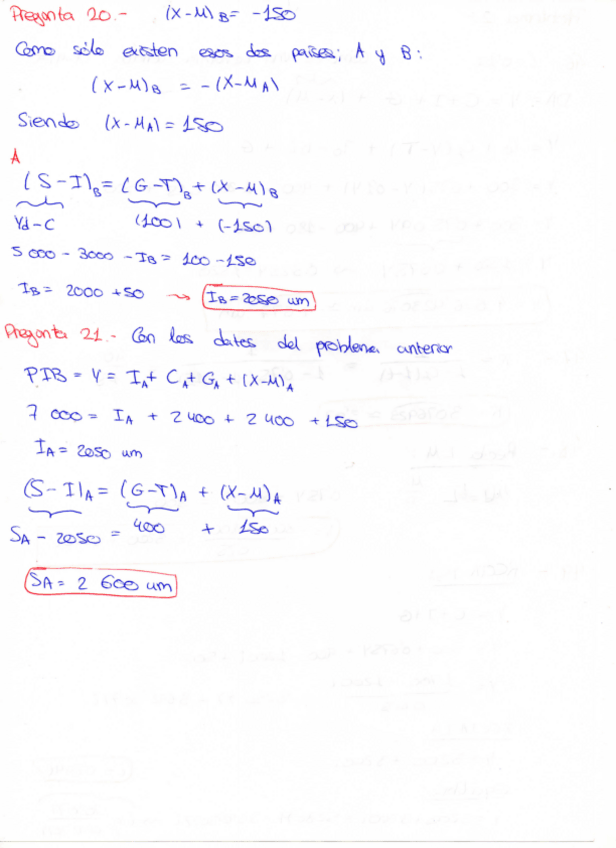 Pregunta 20.- (X-M)B = -150
Como sólo existen esos dos países; A y B:
(X-M)B = -(X-MA)
Siendo (X-MA) = 150
A
(S-I)B = (G-T)B + (X-M)B
Yd-C (100) + (-150)
5 000 - 3000 - IB = 100 - 150
IB = 2000 + 50 → IB = 2050 um
Pregunta 21.- Con los datos del problema anterior
PIB = Y = IA + CA + GA + (X-M)A
7 000 = IA + 2 400 + 2 400 + 150
IA = 2050 um
(S-I)A = (G-T)A + (X-M)A
SA - 2050 = 400 + 150
SA = 2 600 um